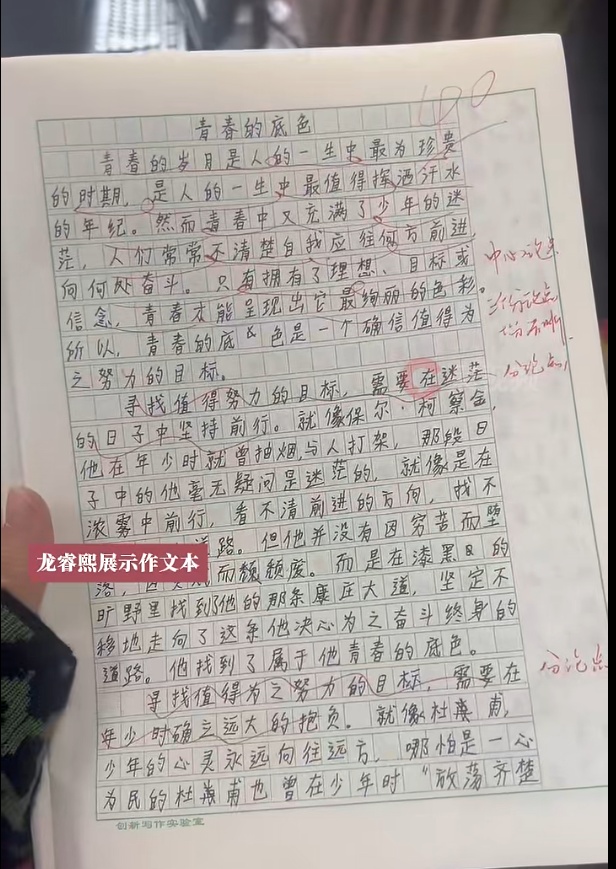 100
青春的底色
青春的岁月是人的一生中最为珍贵
的时期，是人的一生中最值得挥洒汗水
的年纪。然而青春中又充满了少年的迷
茫，人们常常不清楚自我应往何方前进，
向何处奋斗。只有拥有了理想、目标或
信念，青春才能呈现出它最绚丽的色彩。
所以，青春的底色是一个确信值得为
之努力的目标。
寻找值得努力的目标，需要在迷茫
的日子中坚持前行。就像保尔·柯察金，
他在年少时就曾抽烟，与人打架，那段日
子中的他毫无疑问是迷茫的，就像是在
浓雾中前行，看不清前进的方向，找不
道路。但他并没有因穷苦而堕
落，而颓废。而是在漆黑的
旷野里找到了他的那条康庄大道，坚定不
移地走向了这条他决心为之奋斗终身的
道路。他找到了属于他青春的底色。
寻找值得为之努力的目标，需要在
年少时确立远大的抱负。就像杜甫，
少年的心灵永远向往远方，哪怕是一心
为民的杜甫也曾在少年时“放荡齐楚
中心论点
分论点
分论点
龙睿熙展示作文本
创新写作实验室